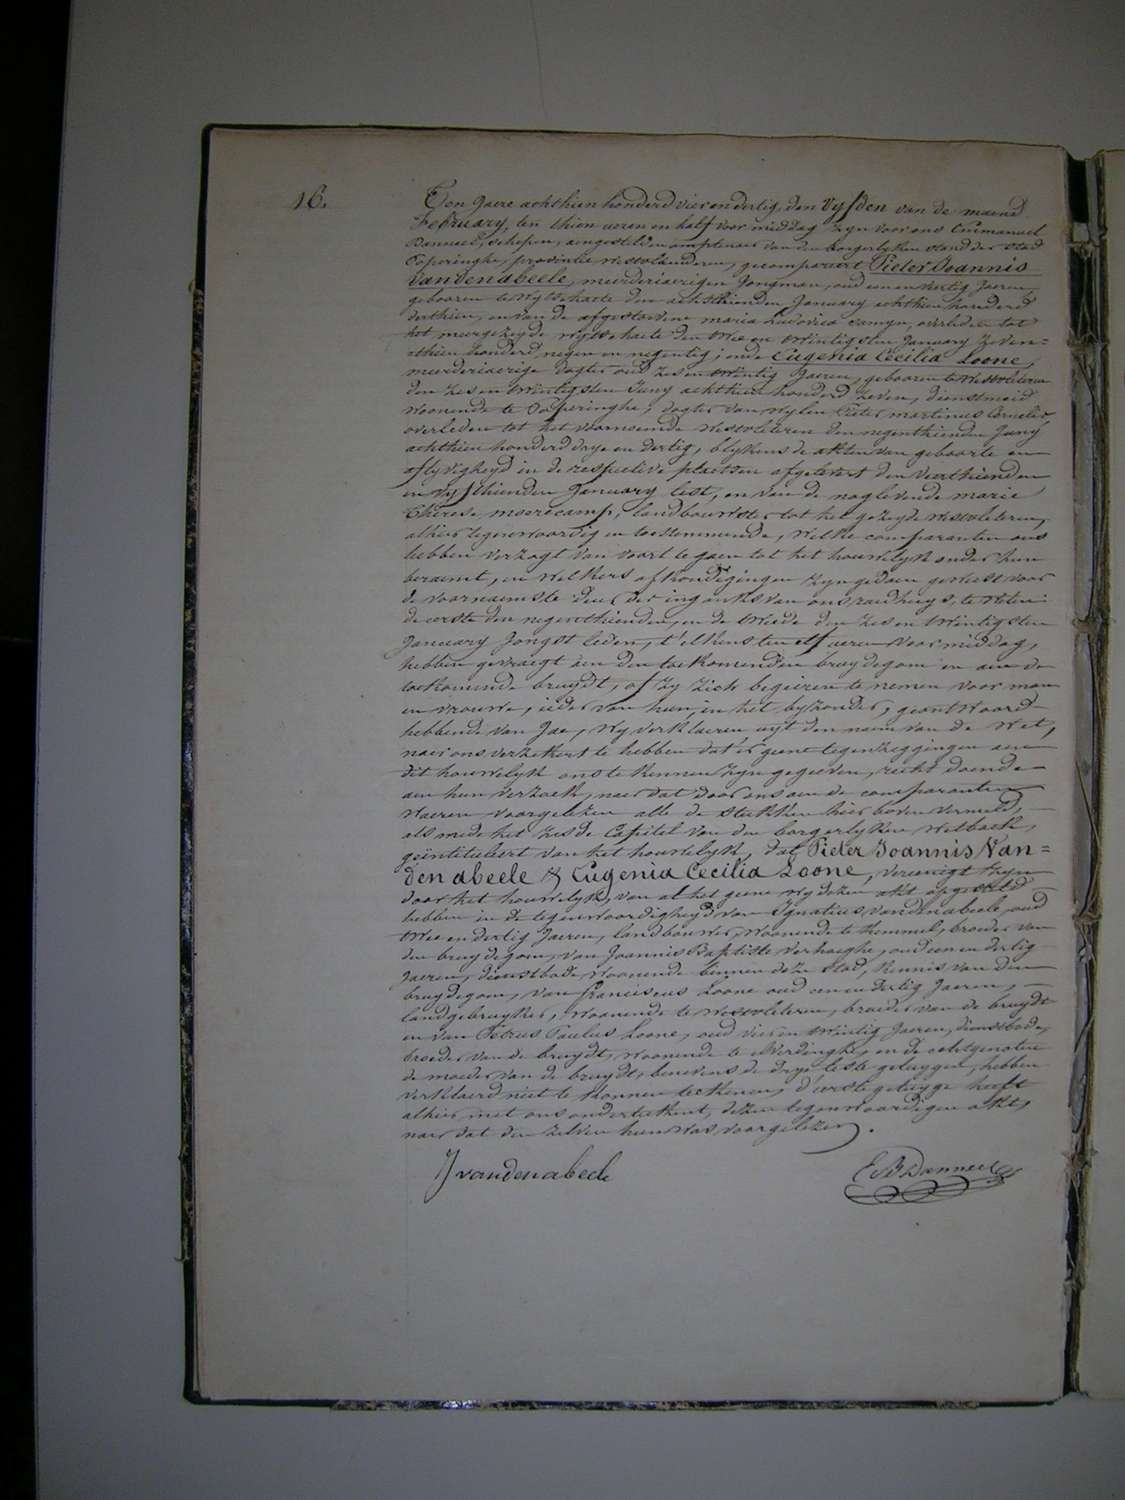 16.
Ten Jaere achthien honderd vier en dertig, den vyfden van de maend
February, ten thien uren en half voor middag zyn voor ons Emmanuel
Danneel, schepen, aengestelden amptenaer van den borgerlyken stand der stad
Poperinghe, provintie westvlaenderen, gecompareert Pieter Joannis
Vandenabeele, meerderjaerigen Jongman, oud een en dertig Jaeren,
gebooren te Wytschaete den achtthienden January achthien honderd
derthien, en van de afgestorvene maria Ludovica camyn, overleden tot
het meergezeyde Wytschaete den twee en twintigsten January zeven=
=thien honderd negen en negentig; ende Eugenia Cecilia Loone,
meerderjaerige dogter oud zes en twintig Jaeren, gebooren te Westvleteren
den zes en twintigsten Juny achtthien honderd zeven, dienstmeid
woonende te Poperinghe, dogter van wylen Pieter martinus Cornelis
overleden tot het voornoemde Westvleteren den negenthienden Juny
achthien honderd drye en dertig, blykens de akten van geboorte en
aflyvigheyd in de respective plaetsen afgelevert den vierthienden
en vyfthienden January lest, en van de naglevende marie
Therese moerecamp, landbouwster tot het gezeyde Westvleteren,
alhier tegenwoordig en toestemmende, welke comparanten ons
hebben verzogt van voort te gaen tot het houwelyk onder hun
beraemt, en welkers afkondigingen zyn gedaen geweest voor
de voornaemste deur der ingank van ons raedhuys, te weten:
de eerste den negenthienden, en de tweede den zes en twintigsten
January Jongst leden, t'elkens ten elf uren voor middag,
hebben gevraegt aen den toekomenden bruydegom en aen de
toekomende bruydt, of zy zich begeeren te nemen voor man
en vrouwe, ieder van hun, in het byzonder, geantwoord
hebbende van Jae, wy verklaeren uyt den naem van de Wet,
naer ons verzekert te hebben dat er geene tegenzeggingen aen
dit houwelyk ons te kennen zyn gegeeven, recht doende
aen hun verzoek, naer dat door ons aen de comparanten
waeren voorgelezen alle de stukken hier boven vermeld,
als mede het zesde Capitel van den borgerlyken Wetboek,
geïntituleert van het houwelyk, dat Pieter Joannis Van=
den abeele & Eugenia Cecilia Loone, vereenigt zyn
door het houwelyk, van al het geene wy dezen akt opgesteld
hebben in de tegenwoordigheyd van Ignatius vandenabeele, oud
twee en dertig Jaeren, landbouwer, woonende te Kemmel, broeder van
den bruydegom, van Joannis Baptiste Verhaeghe, oud een en dertig
Jaeren, dienstbode woonende binnen deze Stad, kennis van den
bruydegom, van franciscus Loone oud een en dertig Jaeren,
landgebruyker, woonende te Westvleteren, broeder van de bruydt
en van Petrus Paulus Loone, oud vier en twintig Jaeren, dienstbode,
broeder van de bruydt, woonende te Elverdinghe, en de echtgenoten
de moeder van de bruydt, benevens de drye leste getuygen, hebben
verklaerd niet te konnen teekenen, d'eerste getuyge heeft
alhier met ons onderteekent, dezen tegenwoordigen akt,
naer dat den zelven hun was voorgelezen.
J vandenabeele
E B Danneel